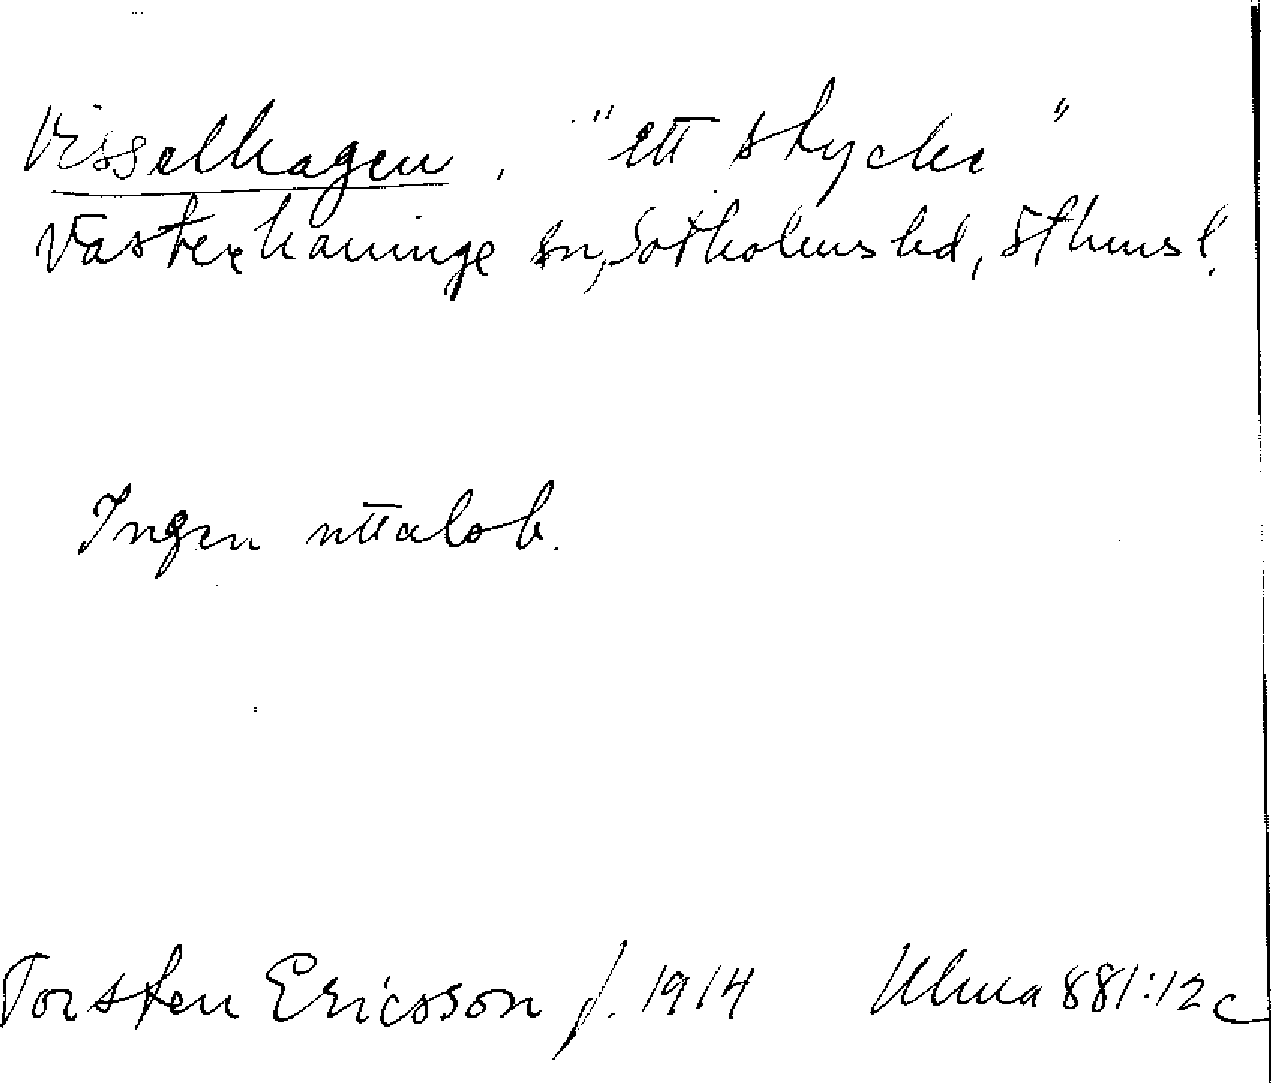 Visselhagen, "ett stycke"
Västerhaninge sn, Sotholms hd, Sthms l.
Ingen uttalsb.
Torsten Ericsson f. 1914 Ulma 881:12c